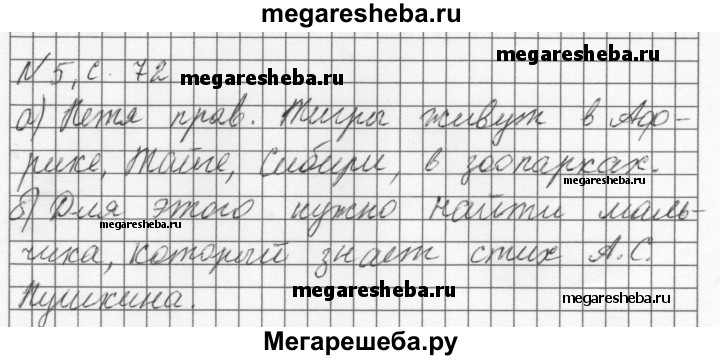 megaresheba.ru
megaresheba.ru
N 5, с. 72 megaresheba.ru
а) Петя прав. Тигры живут в Аф-
рике, Тайге, Сибири, в зоопарках.
megaresheba.ru
б) Для этого нужно найти маль-
megaresheba.ru
чика, который знает стих А.С.
Пушкина.
megaresheba.ru
megaresheba.ru
Мегарешеба.ру